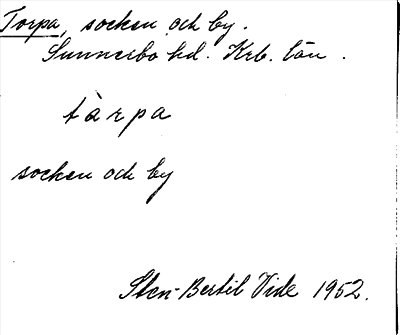 Torpa, socken och by.
Sunnerbo hd. Krb. län.
tàrpa
socken och by
Sten-Bertil Vide 1952.